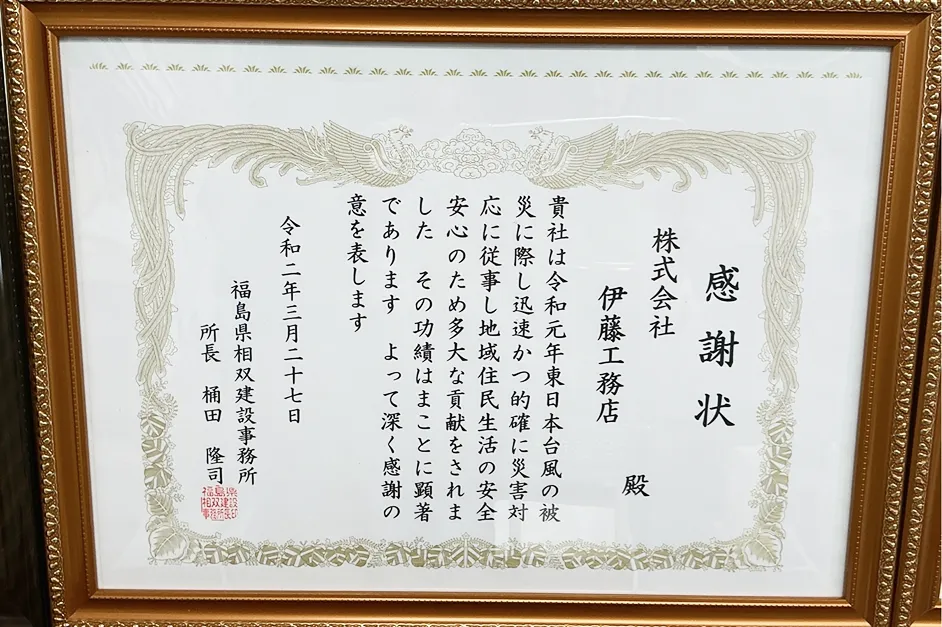 感謝状
株式会社
伊藤工務店
殿
貴社は令和元年東日本台風の被
災に際し迅速かつ的確に災害対
応に従事し地域住民生活の安全
安心のため多大な貢献をされま
した その功績はまことに顕著
であります よって深く感謝の
意を表します
令和二年三月二十七日
福島県相双建設事務所
所長 桶田 隆司